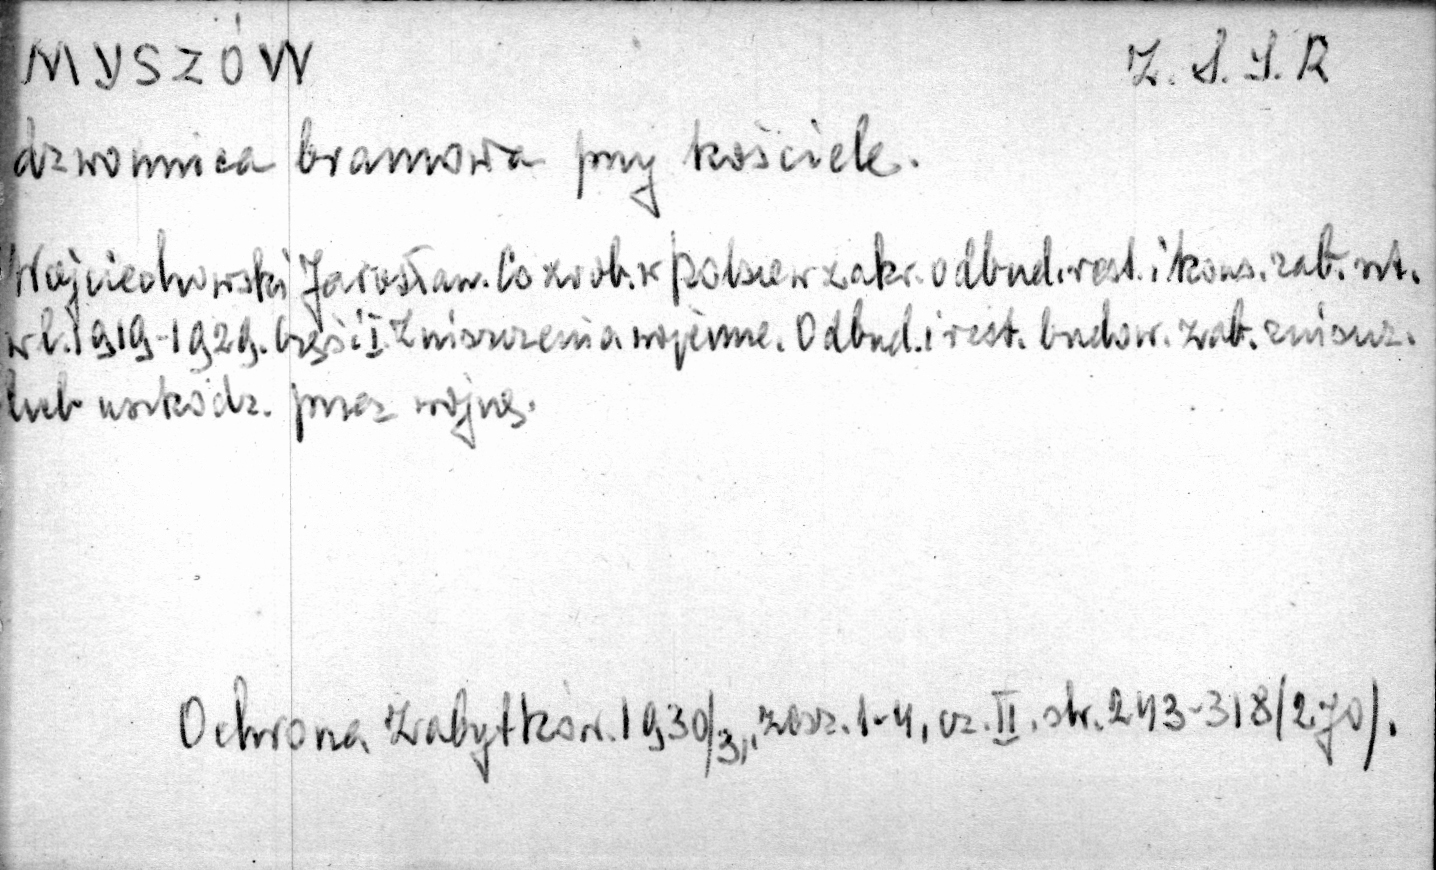 MYSZÓW Z.S.S.R
dzwonnica bramowa przy kościele.
Wojciechowski Jarosław. Co zrob. w Polsce w zakr. odbud. rest. i kons. zab. szt.
w l. 1919-1929. Część I. Zniszczenia wojenne. Odbud. i rest. budow. zab. zniszcz.
lub uszkodz. przez wojnę.
Ochrona Zabytków. 1930/31, zesz. 1-4, cz. II. str. 243-318/270/.